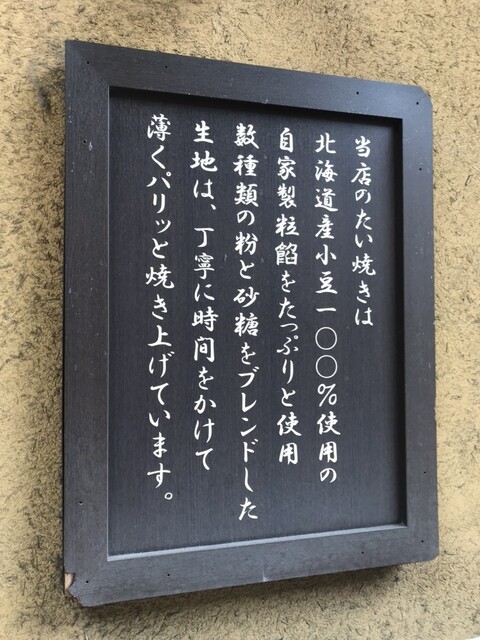 当店のたい焼きは
北海道産小豆一〇〇%使用の
自家製粒餡をたっぷりと使用
数種類の粉と砂糖をブレンドした
生地は、丁寧に時間をかけて
薄くパリッと焼き上げています。